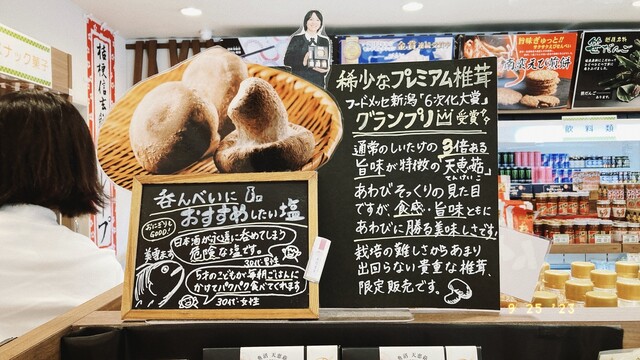 稀少なプレミアム椎茸
フードメッセ新潟"6次化大賞"
グランプリ受賞です
通常のしいたけの3倍ある
旨味が特徴の「天恵菇」
てんけいこ
あわびそっくりの見た目
ですが、食感・旨味ともに
あわびに勝る美味しさです!
栽培の難しさからあまり
出回らない貴重な椎茸、
限定販売です。
呑んべいに
おすすめしたい塩
おにぎりも
GOOD!
日本酒が永遠に呑めてしまう
危険な塩です。
30代・男性
5才のこどもが毎朝ごはんに
かけてパクパク食べてくれます
30代・女性
ナック菓子
桔梗信玄
プ
金賞
旨味ぎゅーっと!
南蛮えび煎餅
笹だんご
飲料類
9 25 '23